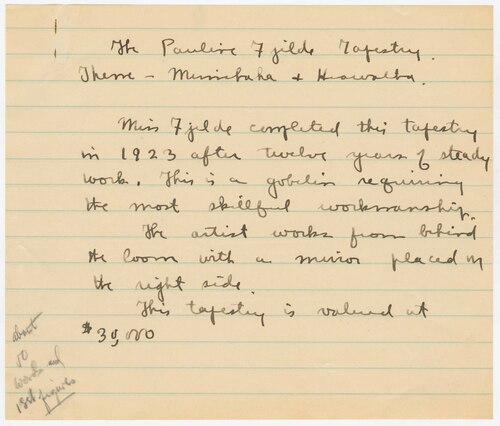 The Pauline Fjelde Tapestry.
Theme - Minnehaha + Hiawatha.
Miss Fjelde completed this tapestry
in 1923 after twelve years of steady
work. This is a gobelin requiring
the most skillful workmanship.
The artist works from behind
the loom with a mirror placed on
the right side.
This tapestry is valued at
$30,000
about
50
words and
figures